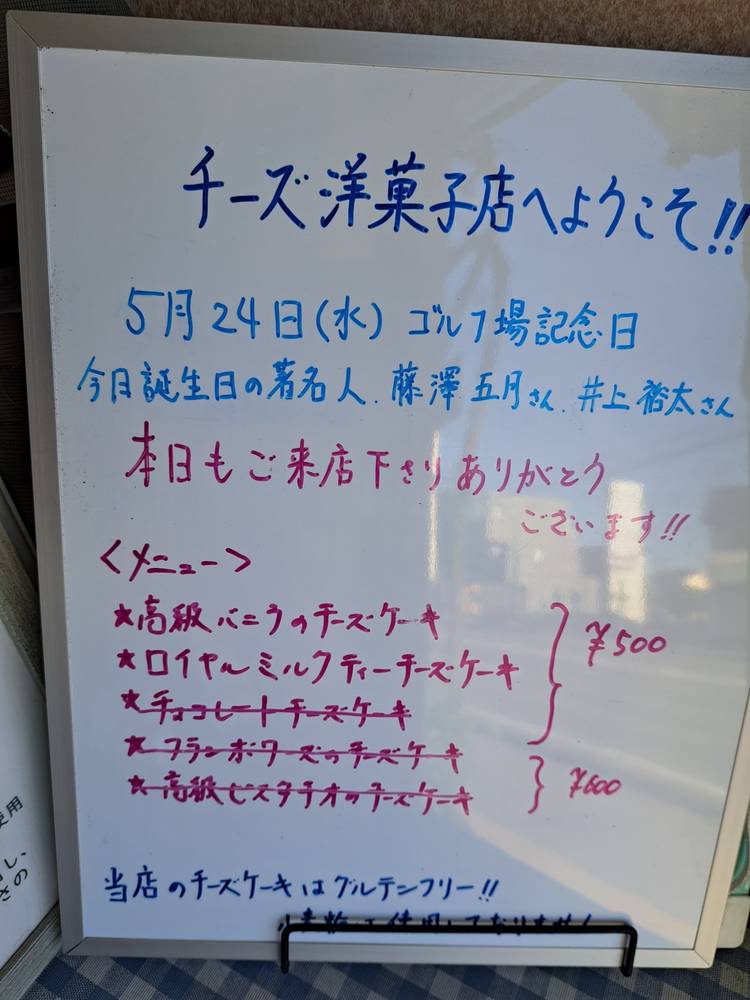 チーズ洋菓子店へようこそ!!
5月24日(水) ゴルフ場記念日
今日誕生日の著名人. 藤澤五月さん. 井上裕太さん
本日もご来店下さりありがとう
ございます!!
<メニュー>
★高級バニラのチーズケーキ
★ロイヤルミルクティーチーズケーキ
¥500
★チョコレートチーズケーキ
★フランボワーズのチーズケーキ
★高級ピスタチオのチーズケーキ
¥600
当店のチーズケーキはグルテンフリー!!
小麦粉は使用しておりません
使用
い、
さの